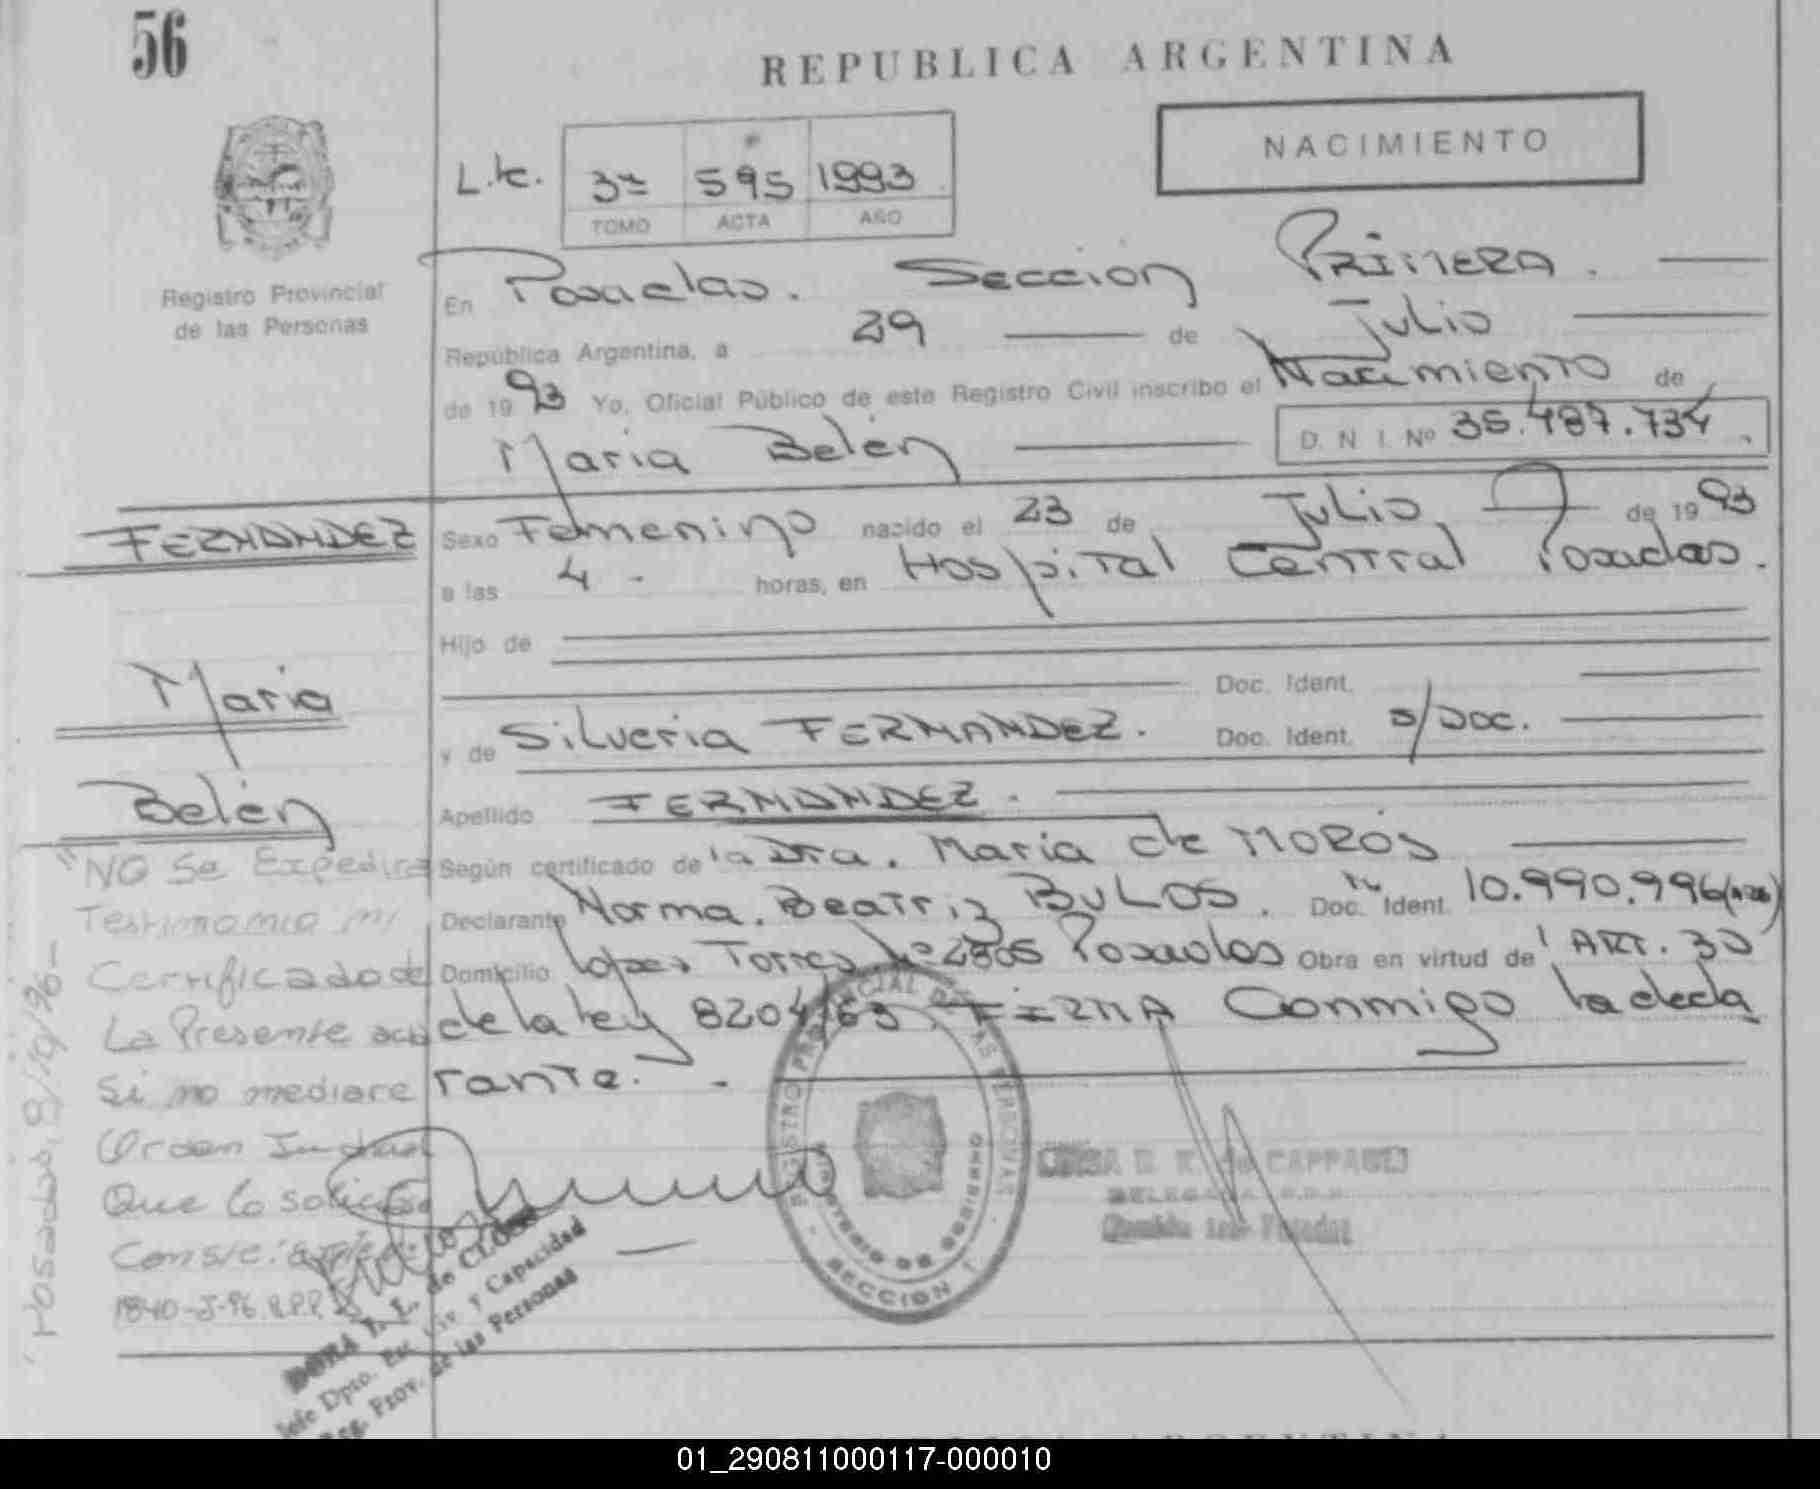 56
REPUBLICA ARGENTINA
NACIMIENTO
3ª 595 1993
TOMO ACTA AÑO
Registro Provincial
de las Personas
En Posadas. Sección PRIMERA.
República Argentina, a 29 de Julio
de 1993 Yo, Oficial Público de este Registro Civil inscribo el Nacimiento de
Maria Belén D. N. I. Nº 35.487.734.
FERNANDEZ
Sexo Femenino nacido el 23 de Julio de 1993
a las 4 - horas, en Hospital Central Posadas.
Hijo de
Doc. Ident.
Maria
y de Silveria FERNANDEZ. Doc. Ident. s/Doc.
Belén
Apellido FERNANDEZ.
Según certificado de la Dra. Maria de MOROS
Declarante Norma. Beatriz BULOS. Doc. Ident. 10.990.996
Domicilio Lopez Torres Nº 2805 Posadas Obra en virtud de ART. 30
de la ley 8204/63. FIRMA Conmigo la decla
rante. -
"NO Se Expedira
Testimonio ni
Certificado de
La Presente acta
Si no mediare
Orden Judicial
Que lo solicite
1840-J-96 R.P.P.
Posadas, 8/10/96-
REGISTRO PROVINCIAL DE LAS PERSONAS
MINISTERIO DE GOBIERNO
- SECCION 1 -
DORA de
Jefe Dpto. Est. Civ. y Capacidad
Reg. Prov. de las Personas
de CAPPAGLI
DELEGADA R.P.P.
Posadas
REPUBLICA ARGENTINA
01_290811000117-000010